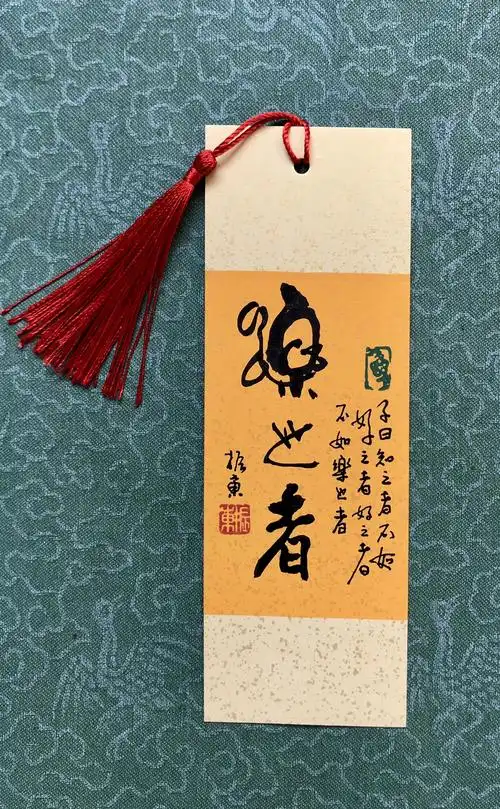 子曰知之者不如
好之者好之者
不如樂之者
樂之者
振東
振東